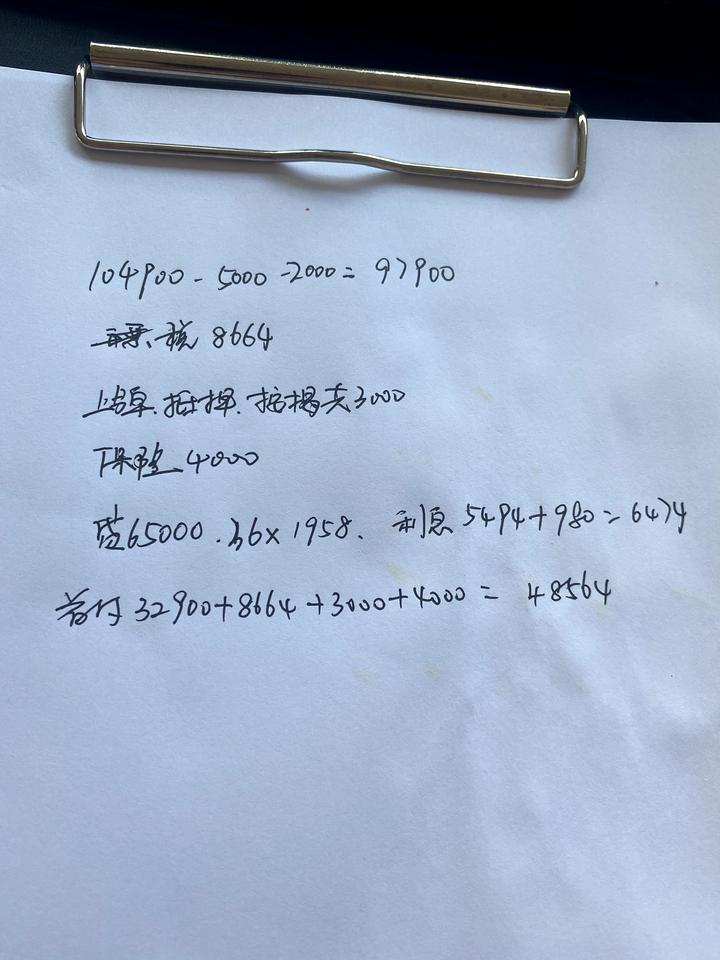 104900-5000-2000=97900
税 8664
上牌.抵押.按揭共3000
保险 4000
贷65000.36×1958、利息5494+980=6474
首付 32900+8664+3000+4000= 48564